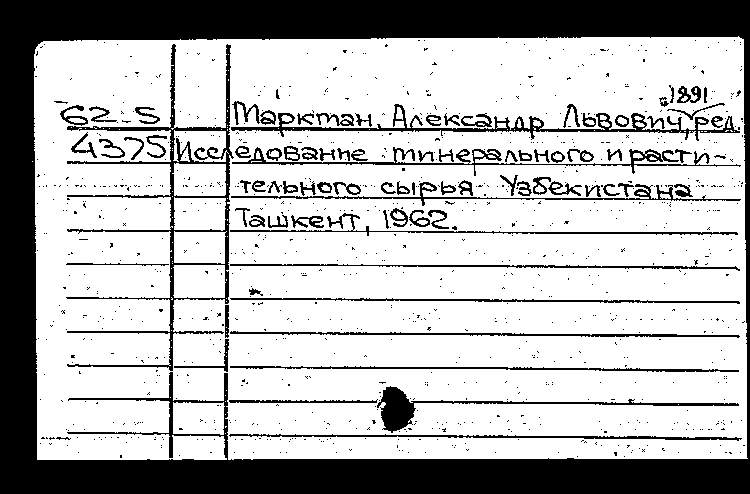 1891
62-5 Маркман, Александр Львович, ред.
4375 Исследование минерального и расти-
тельного сырья Узбекистана.
Ташкент, 1962.